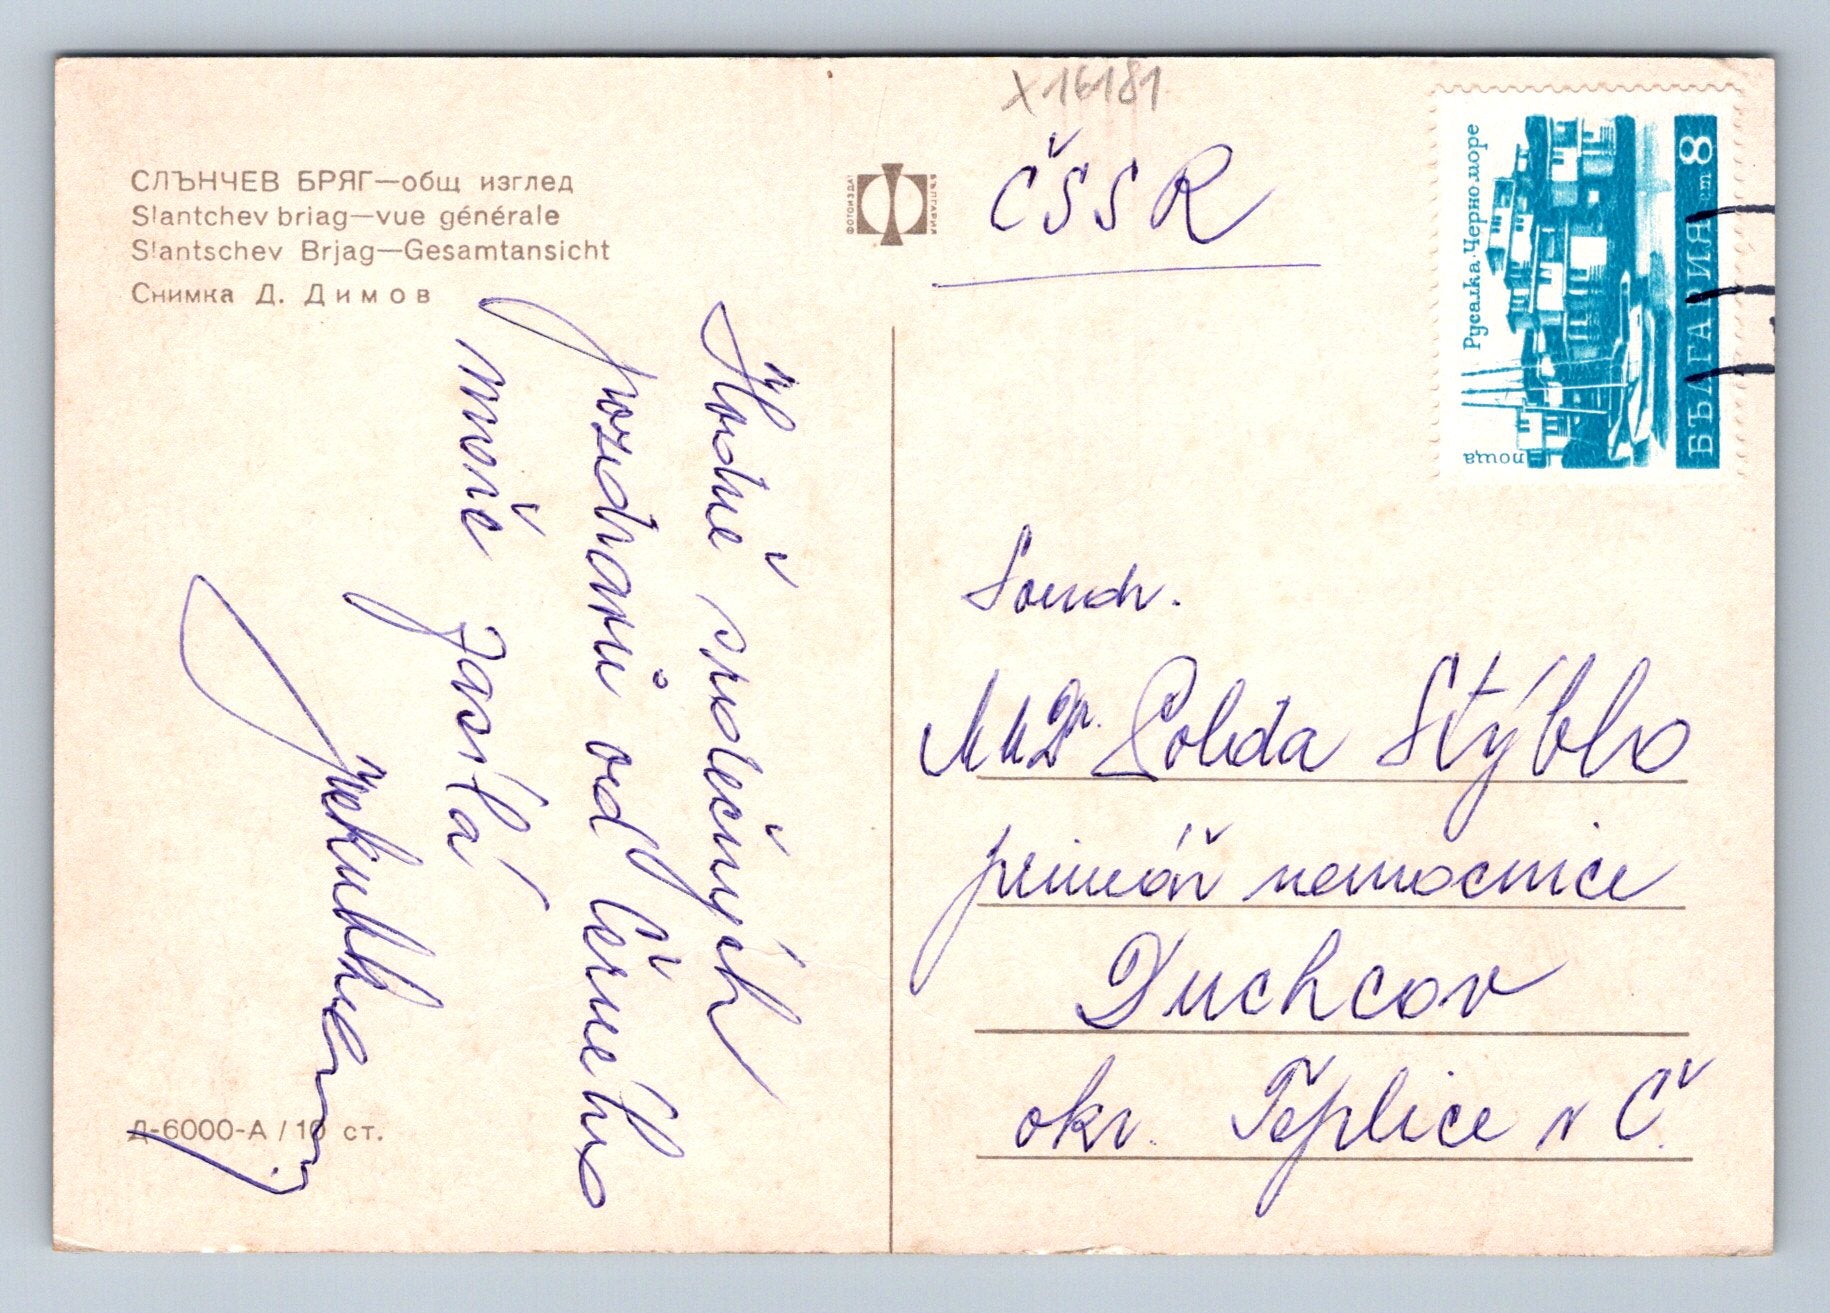 СЛЪНЧЕВ БРЯГ—общ изглед
Slantchev briag—vue générale
Slantschev Brjag—Gesamtansicht
Снимка Д. Димов
Hodně srdečných
pozdravů od Černého
moře zasílá
Д-6000-А / 10 ст.
ФОТОИЗДАТ
БЪЛГАРИЯ
X16181
ČSSR
Русалка.Черно море
поща
БЪЛГАРИЯ 8 ст
Soudr.
MUDr. Polda Stýblo
primář nemocnice
Duchcov
okr. Teplice v Č.